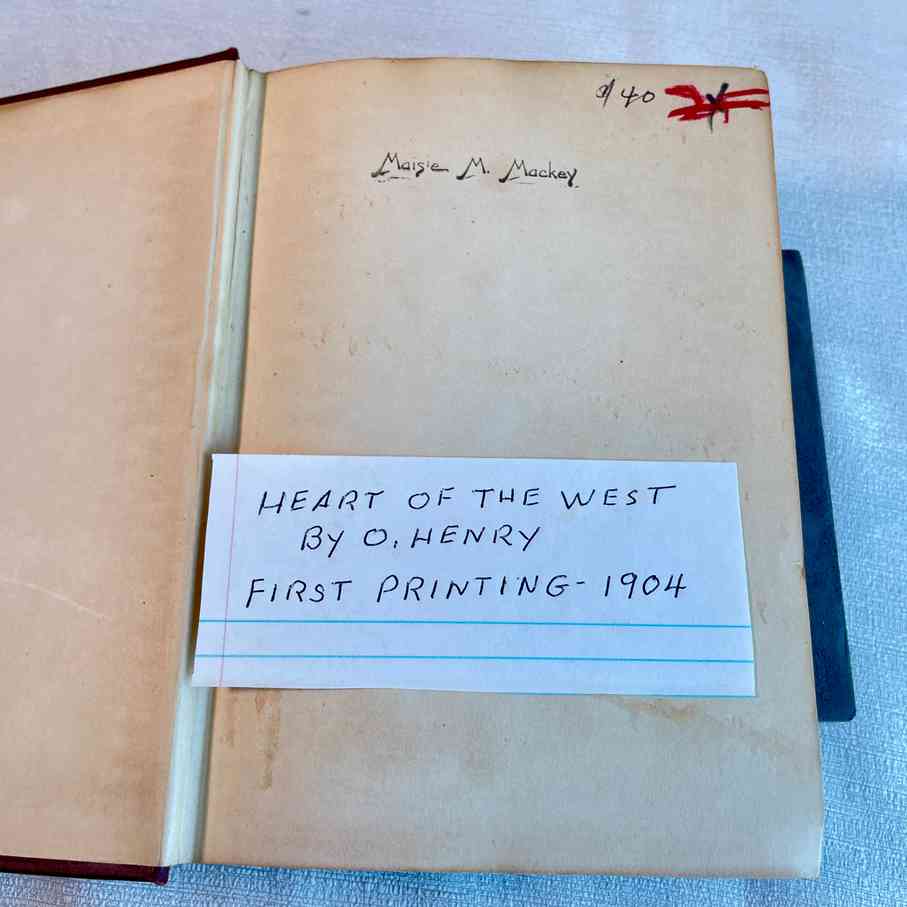 40
Maisie M. Mackey
HEART OF THE WEST
BY O. HENRY
FIRST PRINTING - 1904